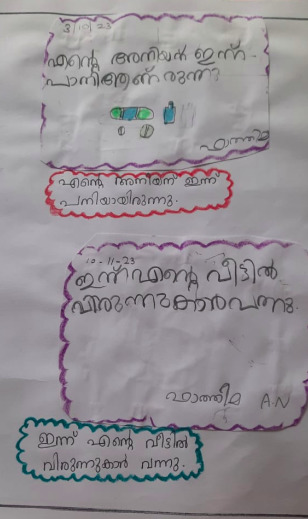 3/10/23
എന്റെ അനിയൻ ഇന്ന്
പാനിആണ് രുന്നു
ഫാത്തിമ
എന്റെ അനിയന് ഇന്ന്
പനിയായിരുന്നു.
10-11-23
ഇന്ന് എന്റെ വീട്ടിൽ
വിരുന്നുകാർവന്നു.
ഫാത്തിമ A.N
ഇന്ന് എന്റെ വീട്ടിൽ
വിരുന്നുകാർ വന്നു.